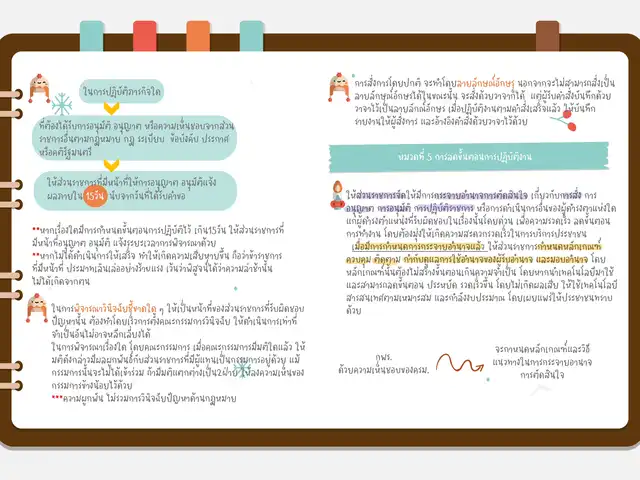 ในการปฏิบัติภารกิจใด
ที่ต้องได้รับการอนุมัติ อนุญาต หรือความเห็นชอบจากส่วน
ราชการอื่นตามกฎหมาย กฎ ระเบียบ ข้อบังคับ ประกาศ
หรือคติรัฐมนตรี
ให้ส่วนราชการที่มีหน้าที่ให้การอนุญาต อนุมัติแจ้ง
ผลภายใน 15วัน นับจากวันที่ได้รับคำขอ
**หากเรื่องใดมีการกำหนดขั้นตอนการปฏิบัติไว้ เกิน15วัน ให้ส่วนราชการที่
มีหน้าที่อนุญาต อนุมัติ แจ้งระยะเวลาการพิจารณาด้วย
**หากไม่ได้ดำเนินการให้เสร็จ ทำให้เกิดความเสียหายขึ้น ถือว่าข้าราชการ
ที่มีหน้าที่ ประมาทเลินเล่ออย่างร้ายแรง เว้นว่าพิสูจน์ได้ว่าความล่าช้านั้น
ไม่ได้เกิดจากตน
ในการพิจารณาวินิจฉัยชี้ขาดใด ๆ ให้เป็นหน้าที่ของส่วนราชการที่รับผิดชอบ
ปัญหานั้น ต้องทำโดยเร็วการตั้งคณะกรรมการวินิจฉัย ให้ดำเนินการเท่าที่
จำเป็นอันไม่อาจหลีกเลี่ยงได้
ในการพิจารณาเรื่องใด โดยคณะกรรมการ เมื่อคณะกรรมการมีมติใดแล้ว ให้
มติดังกล่าวมีผลผูกพันธ์กับส่วนราชการที่มีผู้แทนเป็นกรรมการอยู่ด้วย แม้
กรรมการนั้นจะไม่ได้เข้าร่วม ถ้ามีมติแตกต่างเป็น2ฝ่าย ให้ลงความเห็นของ
กรรมการข้างน้อยไว้ด้วย
***ความผูกพัน ไม่รวมการวินิจฉัยปัญหาด้านกฎหมาย
การสั่งการโดยปกติ จะทำโดยลายลักษณ์อักษร นอกจากจะไม่สามารถสั่งเป็น
ลายลักษณ์อักษรได้ในขณะนั้น จะสั่งด้วยวาจาก็ได้ แต่ผู้รับคำสั่งบันทึกด้วย
วาจาไว้เป็นลายลักษณ์อักษร เมื่อปฏิบัติงานตามคำสั่งเสร็จแล้ว ให้บันทึก
รายงานให้ผู้สั่งการ และอ้างอิงคำสั่งด้วยวาจาไว้ด้วย
หมวดที่ 5 การลดขั้นตอนการปฏิบัติงาน
ให้ส่วนราชการจัดให้มีการกระจายอำนาจการตัดสินใจ เกี่ยวกับการสั่ง การ
อนุญาต การอนุมัติ การปฏิบัติราชการ หรือการดำเนินการอื่นของผู้ดำรงตำแหน่งใด
แก่ผู้ดำรงตำแหน่งที่รับผิดชอบในเรื่องนั้นโดยด่วน เพื่อความรวดเร็ว ลดขั้นตอน
การทำงาน โดยต้องมุ่งให้เกิดความสะดวกรวดเร็วในการบริการประชาชน
เมื่อมีการกำหนดการกระจายอำนาจแล้ว ให้ส่วนราชการกำหนดหลักเกณฑ์
ควบคุม ติดตาม กำกับดูแลการใช้อำนาจของผู้รับอำนาจ และมอบอำนาจ โดย
หลักเกณฑ์นั้นต้องไม่สร้างขั้นตอนเกินความจำเป็น โดยหากนำเทคโนโลยีมาใช้
และสามารถลดขั้นตอน ประหยัด รวดเร็วขึ้น โดยไม่เกิดผลเสีย ให้ใช้เทคโนโลยี
สารสนเทศตามเหมาะสม และกำลังงบประมาณ โดยเผยแพร่ให้ประชาชนทราบ
ด้วย
กพร.
ด้วยความเห็นชอบของครม.
จะกำหนดหลักเกณฑ์และวิธี
แนวทางในการกระจายอำนาจ
การตัดสินใจ